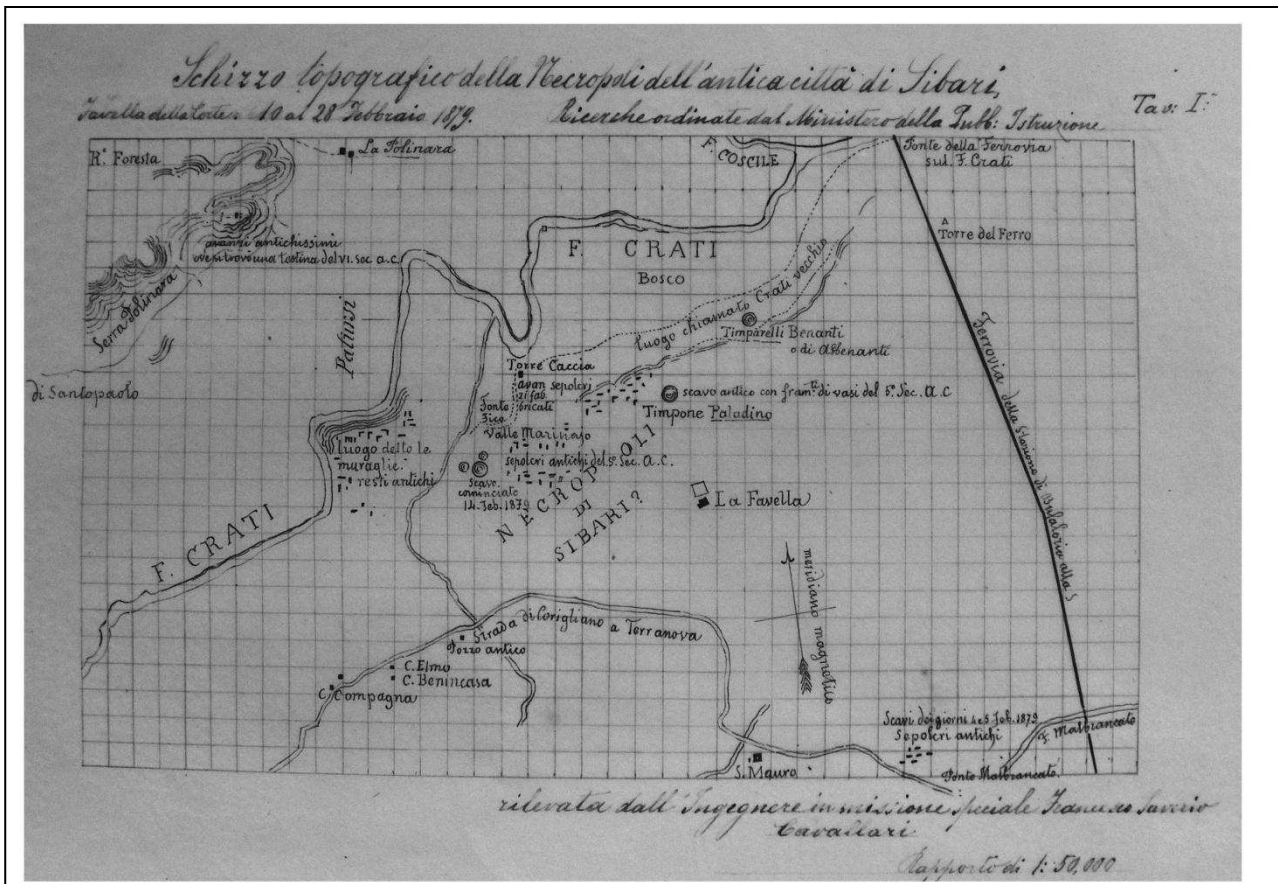 Schizzo topografico della Necropoli dell'antica città di Sibari,
Favella della Corte 10 al 28 Febbraio 1879.
Ricerche ordinate dal Ministero della Pubb: Istruzione
Tav: I:
Rª. Foresta
La Polinara
F. COSCILE
Ponte della Ferrovia
sul F. Crati
Torre del Ferro
avanzi antichissimi
ove si trovò una testina del VI. Sec. a.C.
Serra Polinara
F. CRATI
Bosco
luogo chiamato Crati vecchio
Timparelli Benanti
o di Abenanti
Patursi
di Santopaolo
Torre Caccia
avan sepolcri
zi fab
bricati
Fonte
Fico
scavo antico con fram.ti di vasi del 5º. Sec. A.C
Timpone Paladino
Valle Marinajo
luogo detto le
muraglie.
resti antichi
sepolcri antichi del 5º. Sec. A.C.
Scavo
cominciato
14. Feb. 1879
NECROPOLI
DI
SIBARI?
La Favella
F. CRATI
meridiano magnetico
Ferrovia della Stazione di Bufaloria alla S
Strada di Corigliano a Terranova
Pozzo antico
C. Elmo
C. Benincasa
C. Compagna
Scavi dei giorni 4 e 5 Feb. 1879
Sepolcri antichi
F. Malbrancato
S. Mauro
Ponte Malbrancato.
rilevata dall'Ingegnere in missione speciale Francesco Saverio
Cavallari
Rapporto di 1: 50,000